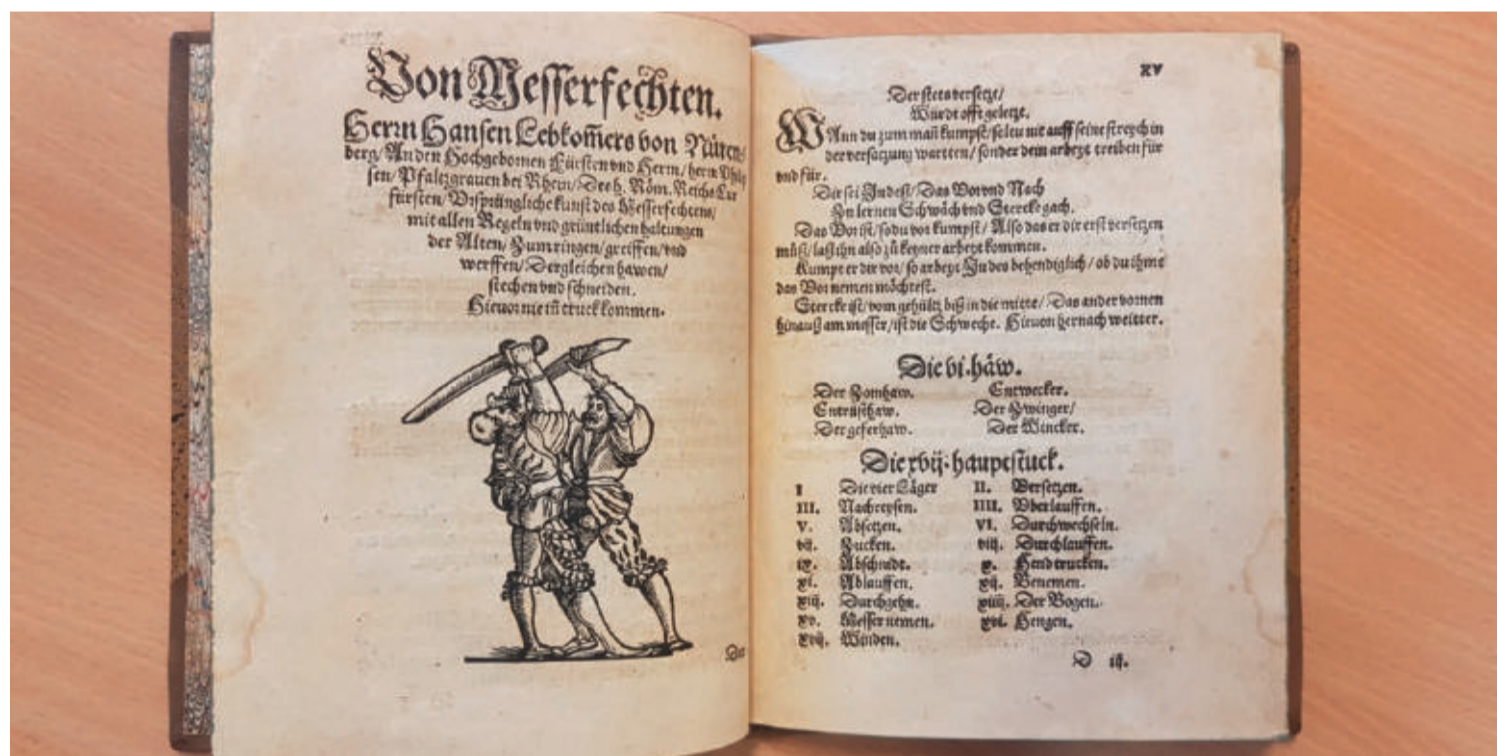 Von Messerfechten.
Herrn Hansen Lebkom̃ers von Nüren-
berg/ An den Hochgebornen Fürsten vnd Herrn/ herrn Philip
sen/ Pfaltzgrauen bei Rhein/ Des h. Röm. Reichs Cur
fürsten/ Vrsprüngliche kunst des Messerfechtens/
mit allen Regeln vnd grüntlichen haltungen
der Alten/ Zum ringen/ greiffen/ vnd
werffen/ Dergleichen hawen/
stechen vnd schneiden.
Hieuor nie iñ truck kommen.
Der
XV
Der stets versetzt/
Würdt offt geletzt.
WAnn du zum mañ kumpst/ soltu nit auff seine streych in
der versatzung wartten/ sonder dem arbeyt treiben für
vnd für.
Dir sei Indest/ Das Vor vnd Nach
Zu lernen Schwäch vnd Stercke gach.
Das Vor ist/ so du vor kumpst/ Also das er dir erst versetzen
müß/ laß ihn also zů keyner arbeyt kommen.
Kumpt er dir vor/ so arbeyt Indes behendiglich/ ob du ihme
das Vor nemen möchtest.
Stercke ist/ vom gehültz biß in die mitte/ Das ander vornen
hinauß am messer/ ist die Schweche. Hieuon hernach weitter.
Die vi. häw.
Der Zornhaw. Entwecker.
Entrüsthaw. Der Zwinger/
Der geferhaw. Der Wincker.
Die xvij. hauptstuck.
I Die vier Läger II. Versetzen.
III. Nachreysen. IIII. Vberlauffen.
V. Absetzen. VI. Durchwechseln.
vij. Zucken. viij. Durchlauffen.
ix. Abschnidt. x. Hend trucken.
xi. Ablauffen. xij. Benemen.
xiij. Durchgehn. xiiij. Der Bogen.
xv. Messer nemen. xvi. Hengen.
xvij. Winden.
D iij.